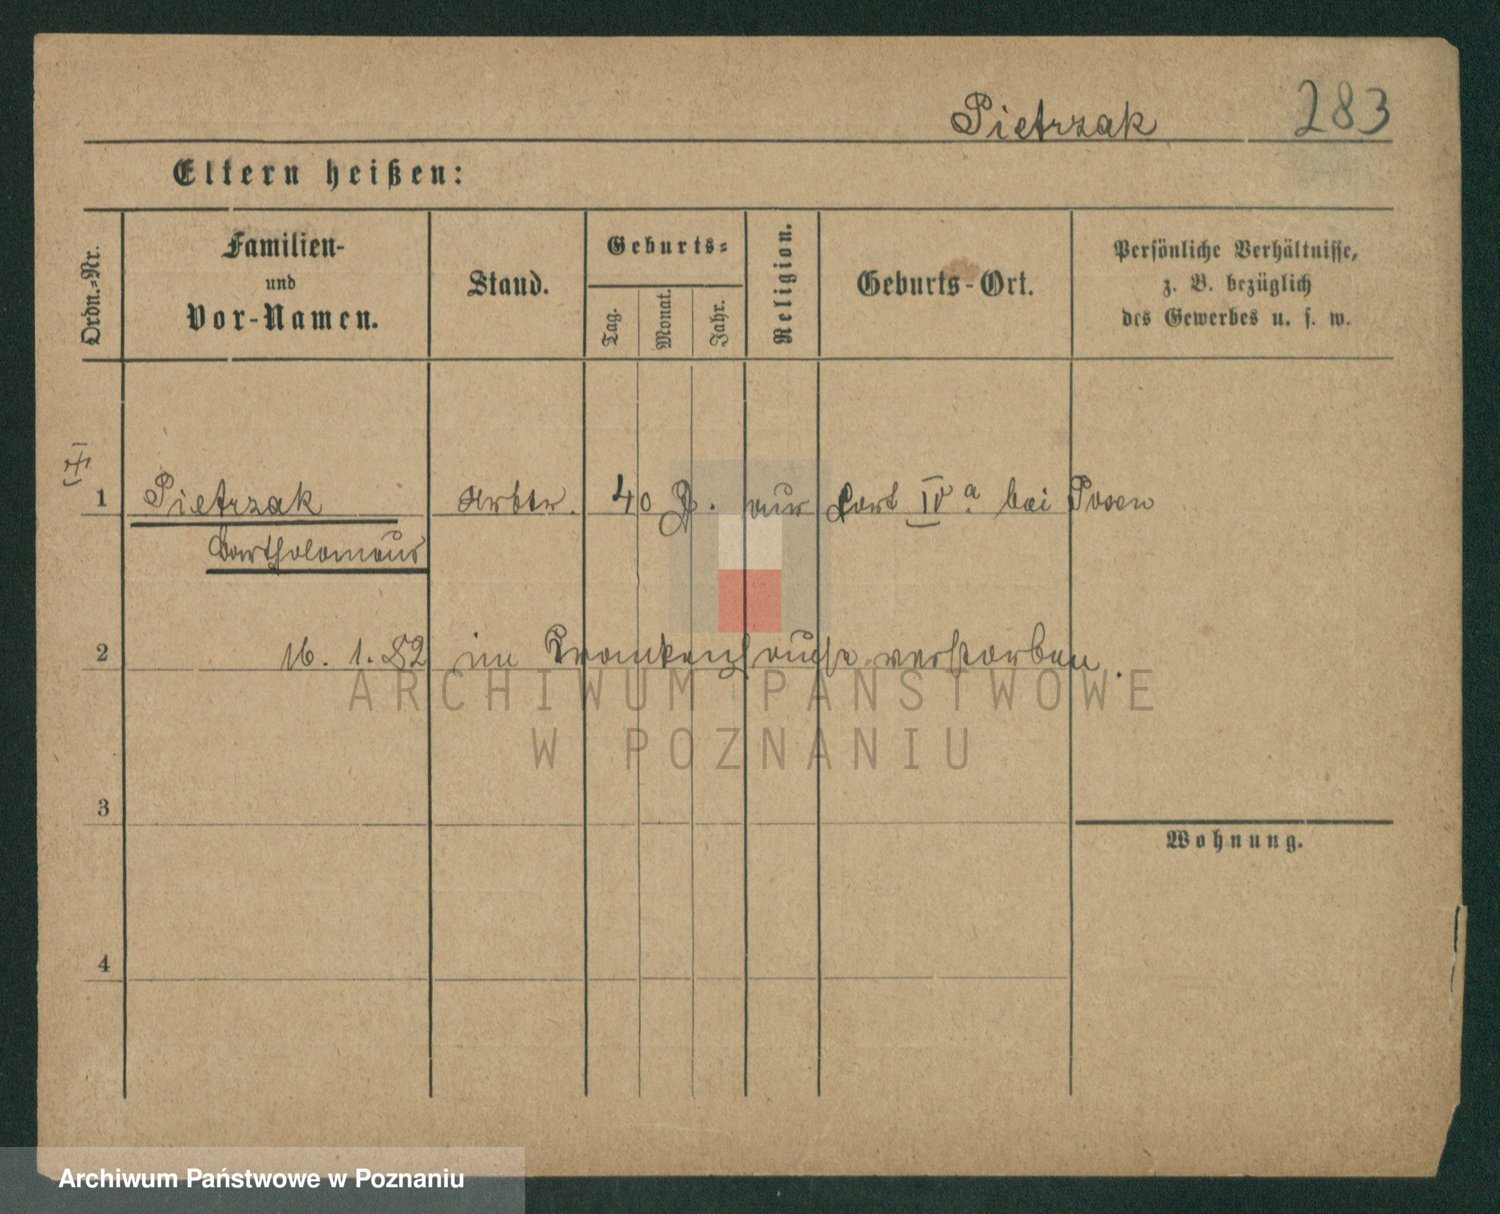 Pietrzak 283
Eltern heißen:
Ordn.-Nr.
Familien-
und
Vor-Namen.
Stand.
Geburts-
Tag.
Monat.
Jahr.
Religion.
Geburts-Ort.
Persönliche Verhältnisse,
z. B. bezüglich
des Gewerbes u. s. w.
1 Pietrzak Arbtr. 40 J. aus Fort IV a bei Posen
Bartholomäus
2 16. 1. 82 im Krankenhause verstorben.
ARCHIWUM PAŃSTWOWE
W POZNANIU
3
Wohnung.
4
Archiwum Państwowe w Poznaniu